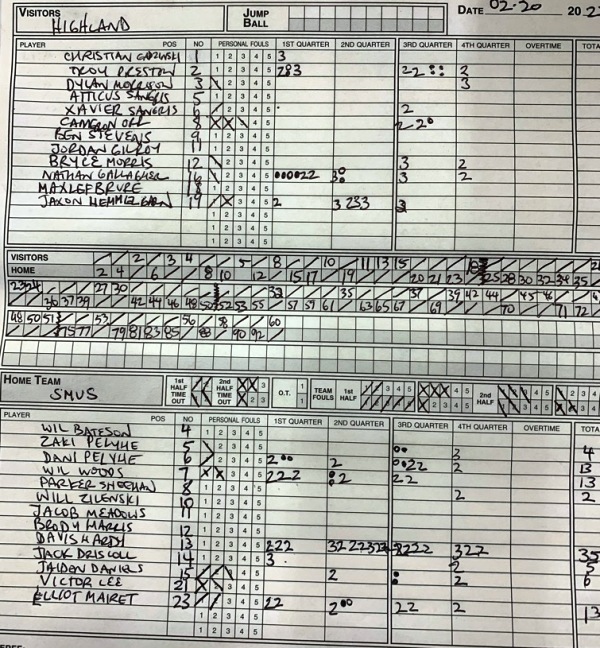 VISITORS HIGHLAND JUMP BALL DATE 02-20 20 2
PLAYER POS NO PERSONAL FOULS 1ST QUARTER 2ND QUARTER 3RD QUARTER 4TH QUARTER OVERTIME TOTA
CHRISTIAN 1 1 2 3 4 5 3
TROY PRESTON 2 1 2 3 4 5 283 22 2
DYLAN MORRISON 3 2 3 4 5 3
ATTICUS SANGRIS 5 1 2 3 4 5
XAVIER SANGRIS 6 2 3 4 5 2
CAMERON ORR 8 4 5 2 2
BEN STEVENS 9 1 2 3 4 5
JORDAN GILROY 11 1 2 3 4 5
BRYCE MORRIS 12 2 3 4 5 3 2
NATHAN GALLAGHER 16 2 3 4 5 22 3 3 2
MAX LEFBRVRE 18 1 2 3 4 5
JAXON 19 3 4 5 2 3 233 3
1 2 3 4 5
1 2 3 4 5
1 2 3 4 5
VISITORS 2 3 4 5 8 10 11 13 15 18
HOME 2 4 6 8 10 12 15 17 19 20 21 23 25 28 30 32 34 35
2324 27 30 33 35 37 39 42 44 45 46
36 37 39 42 44 46 48 50 52 53 55 57 59 61 63 65 67 69 70 71 72
48 50 51 53 56 58 60
75 77 79 81 83 85 88 90 92
HOME TEAM SMUS 1st HALF TIME OUT 2nd HALF TIME OUT 3 2 3 O.T. 1 TEAM FOULS 1st HALF 4 5 4 5 2nd HALF 2 3 4
PLAYER POS NO PERSONAL FOULS 1ST QUARTER 2ND QUARTER 3RD QUARTER 4TH QUARTER OVERTIME TOTA
WIL BATESON 4 1 2 3 4 5
ZAKI PELYHE 5 2 3 4 5 3 4
DANI PELYHE 6 2 3 4 5 2 2 22 2 13
WIL WOODS 7 3 4 5 222 2 22 13
PARKER SHEEHAN 8 1 2 3 4 5 2 2
WILL ZILENSKI 10 1 2 3 4 5
JACOB MEADOWS 11 1 2 3 4 5
BRODY HARRIS 12 1 2 3 4 5
DAVIS HARDY 13 2 3 4 5 222 3222 3222 327 35
JACK DRISCOLL 14 2 3 4 5 3 2 5
JAIDEN DANIELS 15 4 5 2 2 6
VICTOR LEE 21 3 4 5
ELLIOT MAIRET 23 3 4 5 22 2 22 2 13
1 2 3 4 5